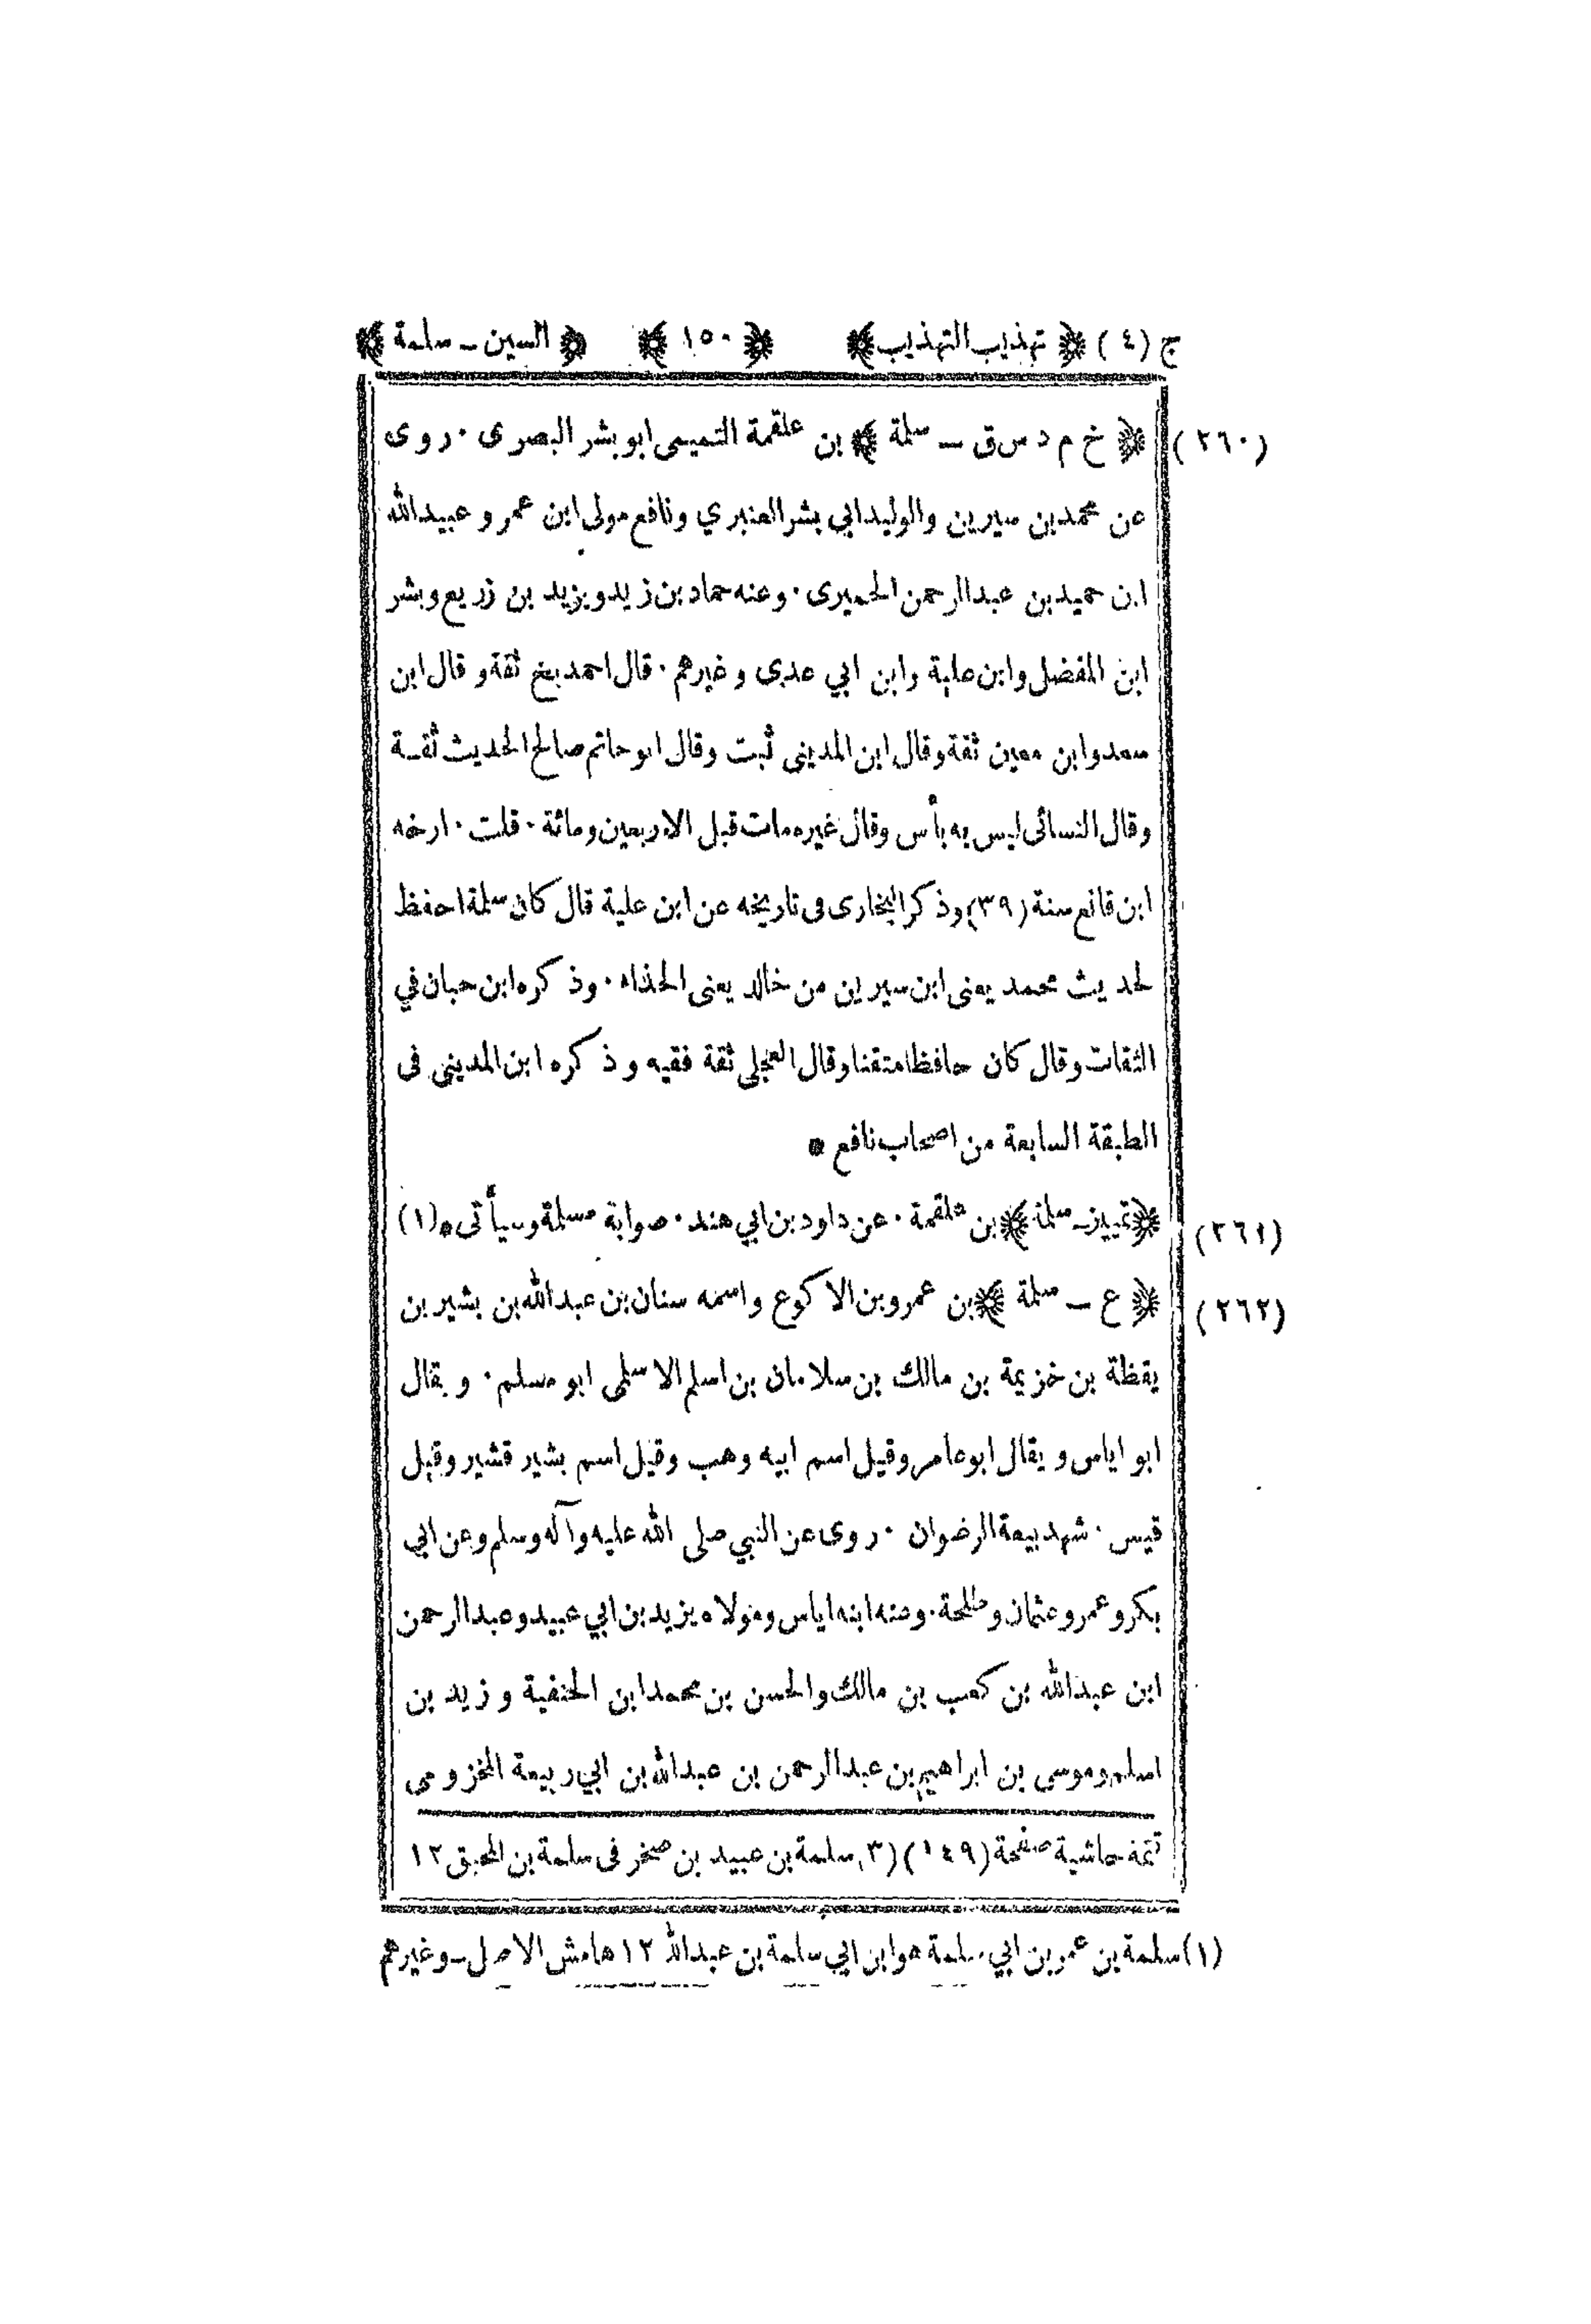 ج (٤) ﴿ تهذيب التهذيب ﴾ ﴿ ١٥٠ ﴾ ﴿ السين ـ سلمة ﴾
(٢٦٠) ﴿ خ م د س ق ـ سلمة ﴾ بن علقمة التميمى ابو بشر البصرى . روى
عن محمد بن سيرين والوليد ابي بشر العنبري ونافع مولى ابن عمر و عبيد الله
ابن حميد بن عبد الرحمن الحميرى . وعنه حماد بن زيد و يزيد بن زريع وبشر
ابن المفضل وابن علية وابن ابي عدى وغيرهم . قال احمد بخ ثقة وقال ابن
سعد وابن معين ثقة وقال ابن المدينى ثبت وقال ابو حاتم صالح الحديث ثقة
وقال النسائى ليس به بأس وقال غيره مات قبل الاربعين ومائة . قلت . ارخه
ابن قانع سنة (٣٩) وذكر البخارى فى تاريخه عن ابن علية قال كان سلمة احفظ
لحديث محمد يعنى ابن سيرين من خالد يعنى الحذاء . وذكره ابن حبان في
الثقات وقال كان حافظا متقنا وقال العجلى ثقة فقيه وذكره ابن المدينى فى
الطبقة السابعة من اصحاب نافع *
(٢٦١) ﴿ تمييز ـ سلمة ﴾ بن علقمة . عن داود بن ابي هند . صوابه مسلمة وسيأتى * (١)
(٢٦٢) ﴿ ع ـ سلمة ﴾ بن عمرو بن الاكوع واسمه سنان بن عبد الله بن بشير بن
يقظة بن خزيمة بن مالك بن سلامان بن اسلم الاسلمى ابو مسلم . ويقال
ابو اياس و يقال ابو عامر وقيل اسم ابيه وهب وقيل اسم بشير قشير وقيل
قيس . شهد بيعة الرضوان . روى عن النبي صلى الله عليه وآله وسلم وعن ابي
بكر وعمر وعثمان وطلحة . وعنه ابنه اياس ومولاه يزيد بن ابي عبيد وعبد الرحمن
ابن عبد الله بن كعب بن مالك والحسن بن محمد ابن الحنفية وزيد بن
اسلم وموسى بن ابراهيم بن عبد الرحمن بن عبد الله بن ابي ربيعة المخزومى
تتمة حاشية صفحة (١٤٩) (٣) سلمة بن عبيد بن صخر فى سلمة بن المحبق ١٢
(١) سلمة بن عمر بن ابي سلمة هو ابن ابي سلمة بن عبد الله ١٢ هامش الاصل ـ وغيرهم